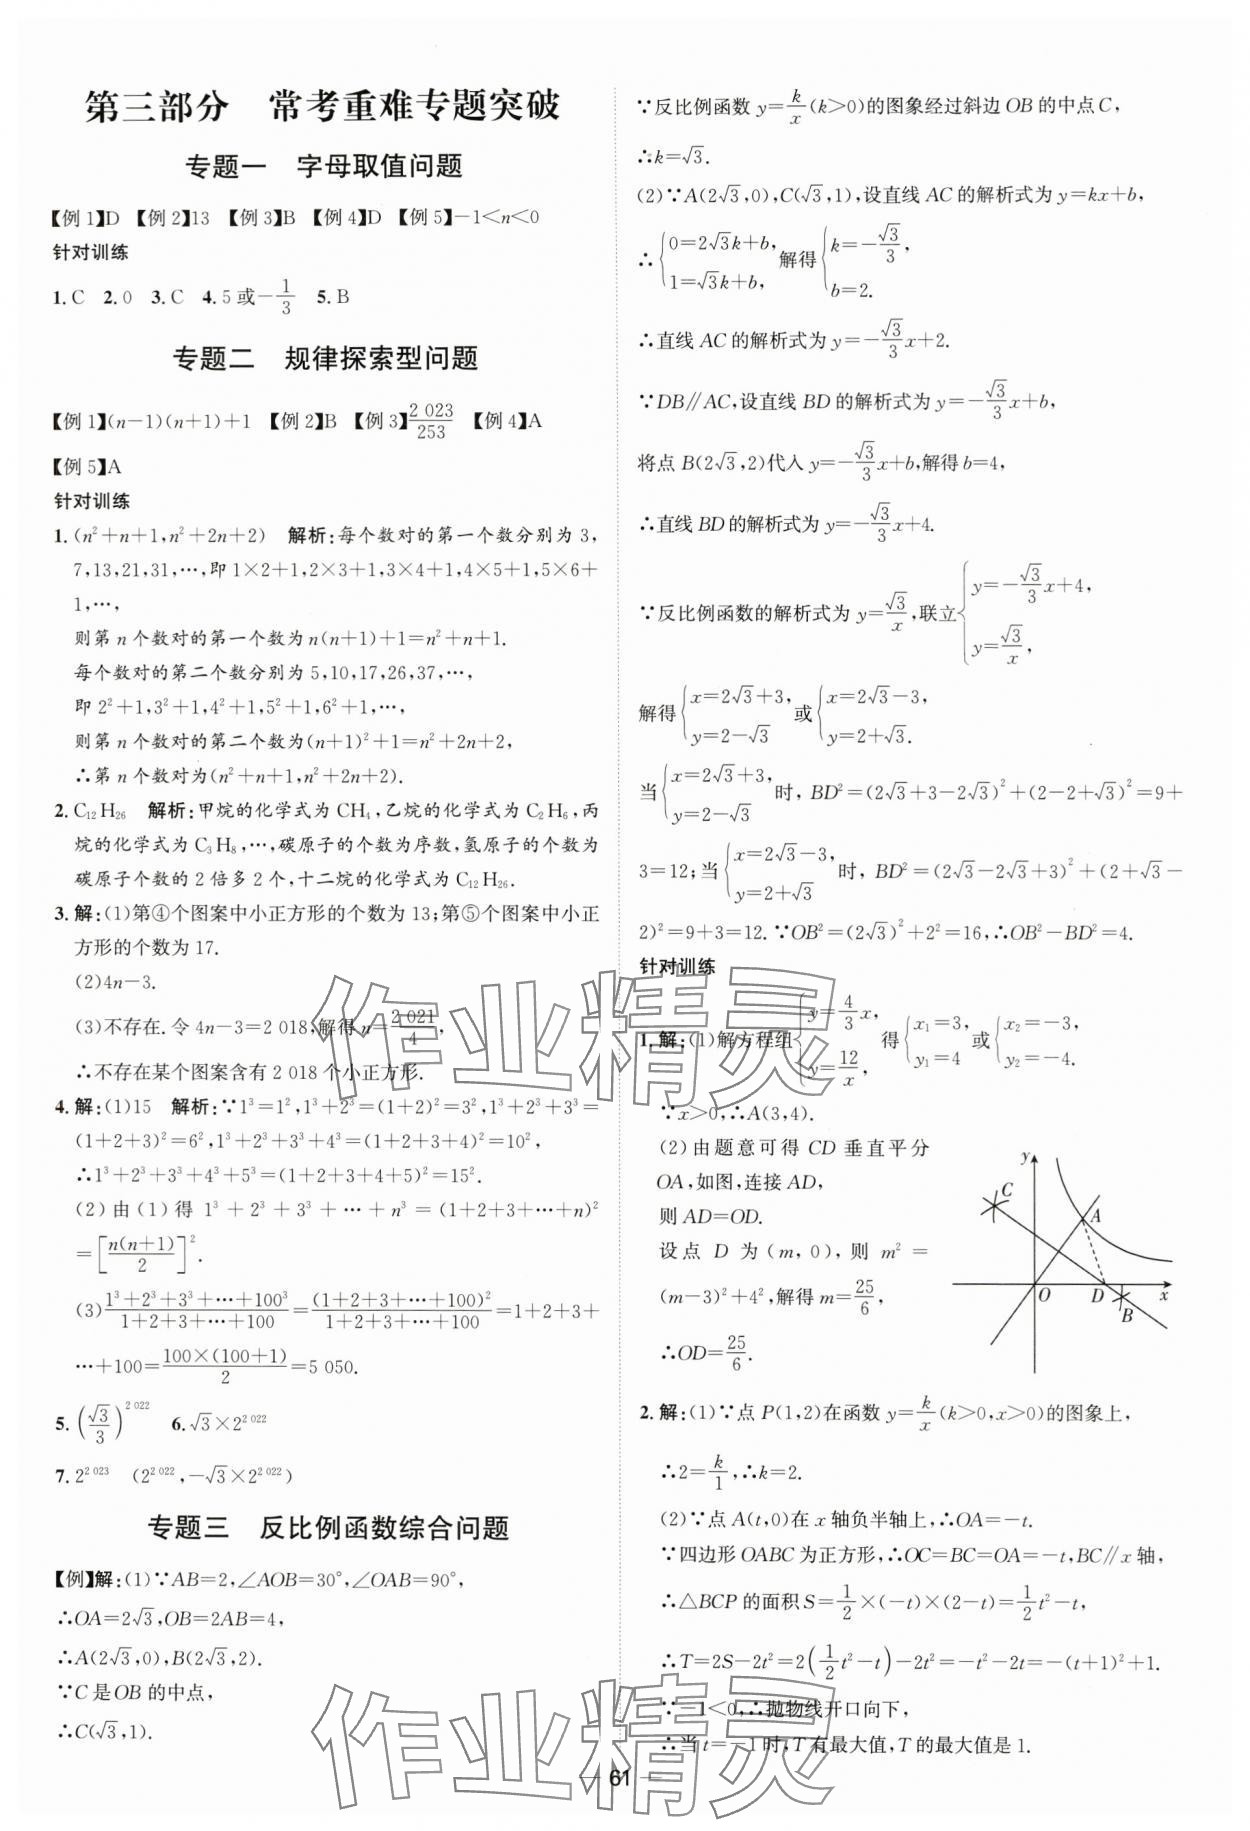 第三部分 常考重难专题突破
专题一 字母取值问题
【例1】D 【例2】13 【例3】B 【例4】D 【例5】-1<n<0
针对训练
1. C 2. 0 3. C 4. 5或-1/3 5. B
专题二 规律探索型问题
【例1】(n-1)(n+1)+1 【例2】B 【例3】2 023/253 【例4】A
【例5】A
针对训练
1. (n²+n+1,n²+2n+2) 解析:每个数对的第一个数分别为3,
7,13,21,31,…,即1×2+1,2×3+1,3×4+1,4×5+1,5×6+
1,…,
则第n个数对的第一个数为n(n+1)+1=n²+n+1.
每个数对的第二个数分别为5,10,17,26,37,…,
即2²+1,3²+1,4²+1,5²+1,6²+1,…,
则第n个数对的第二个数为(n+1)²+1=n²+2n+2,
∴第n个数对为(n²+n+1,n²+2n+2).
2. C₁₂H₂₆ 解析:甲烷的化学式为CH₄,乙烷的化学式为C₂H₆,丙
烷的化学式为C₃H₈,…,碳原子的个数为序数,氢原子的个数为
碳原子个数的2倍多2个,十二烷的化学式为C₁₂H₂₆.
3. 解:(1)第④个图案中小正方形的个数为13;第⑤个图案中小正
方形的个数为17.
(2)4n-3.
(3)不存在.令4n-3=2 018,解得n=2 021/4,
∴不存在某个图案含有2 018个小正方形.
4. 解:(1)15 解析:∵1³=1²,1³+2³=(1+2)²=3²,1³+2³+3³=
(1+2+3)²=6²,1³+2³+3³+4³=(1+2+3+4)²=10²,
∴1³+2³+3³+4³+5³=(1+2+3+4+5)²=15².
(2)由(1)得 1³+2³+3³+…+n³=(1+2+3+…+n)²
=[n(n+1)/2]².
(3)(1³+2³+3³+…+100³)/(1+2+3+…+100)=(1+2+3+…+100)²/(1+2+3+…+100)=1+2+3+
…+100=100×(100+1)/2=5 050.
5. (√3/3)^2 022 6. √3×2^2 022
7. 2^2 023 (2^2 022,-√3×2^2 022)
专题三 反比例函数综合问题
【例】解:(1)∵AB=2,∠AOB=30°,∠OAB=90°,
∴OA=2√3,OB=2AB=4,
∴A(2√3,0),B(2√3,2).
∵C是OB的中点,
∴C(√3,1).
∵反比例函数y=k/x(k>0)的图象经过斜边OB的中点C,
∴k=√3.
(2)∵A(2√3,0),C(√3,1),设直线AC的解析式为y=kx+b,
∴{0=2√3k+b, 1=√3k+b, 解得{k=-√3/3, b=2.
∴直线AC的解析式为y=-√3/3x+2.
∵DB∥AC,设直线BD的解析式为y=-√3/3x+b,
将点B(2√3,2)代入y=-√3/3x+b,解得b=4,
∴直线BD的解析式为y=-√3/3x+4.
∵反比例函数的解析式为y=√3/x,联立{y=-√3/3x+4, y=√3/x,
解得{x=2√3+3, y=2-√3 或{x=2√3-3, y=2+√3.
当{x=2√3+3, y=2-√3 时,BD²=(2√3+3-2√3)²+(2-2+√3)²=9+
3=12;当{x=2√3-3, y=2+√3 时,BD²=(2√3-2√3+3)²+(2+√3-
2)²=9+3=12.∵OB²=(2√3)²+2²=16,∴OB²-BD²=4.
针对训练
1. 解:(1)解方程组{y=4/3x, y=12/x, 得{x₁=3, y₁=4 或{x₂=-3, y₂=-4.
∵x>0,∴A(3,4).
(2)由题意可得CD垂直平分
OA,如图,连接AD,
则AD=OD.
设点D为(m,0),则m²=
(m-3)²+4²,解得m=25/6,
∴OD=25/6.
y
C
A
O
D
B
x
2. 解:(1)∵点P(1,2)在函数y=k/x(k>0,x>0)的图象上,
∴2=k/1,∴k=2.
(2)∵点A(t,0)在x轴负半轴上,∴OA=-t.
∵四边形OABC为正方形,∴OC=BC=OA=-t,BC∥x轴,
∴△BCP的面积S=1/2×(-t)×(2-t)=1/2t²-t,
∴T=2S-2t²=2(1/2t²-t)-2t²=-t²-2t=-(t+1)²+1.
∵-1<0,∴抛物线开口向下,
∴当t=-1时,T有最大值,T的最大值是1.
作业精灵
作业精灵
— 61 —